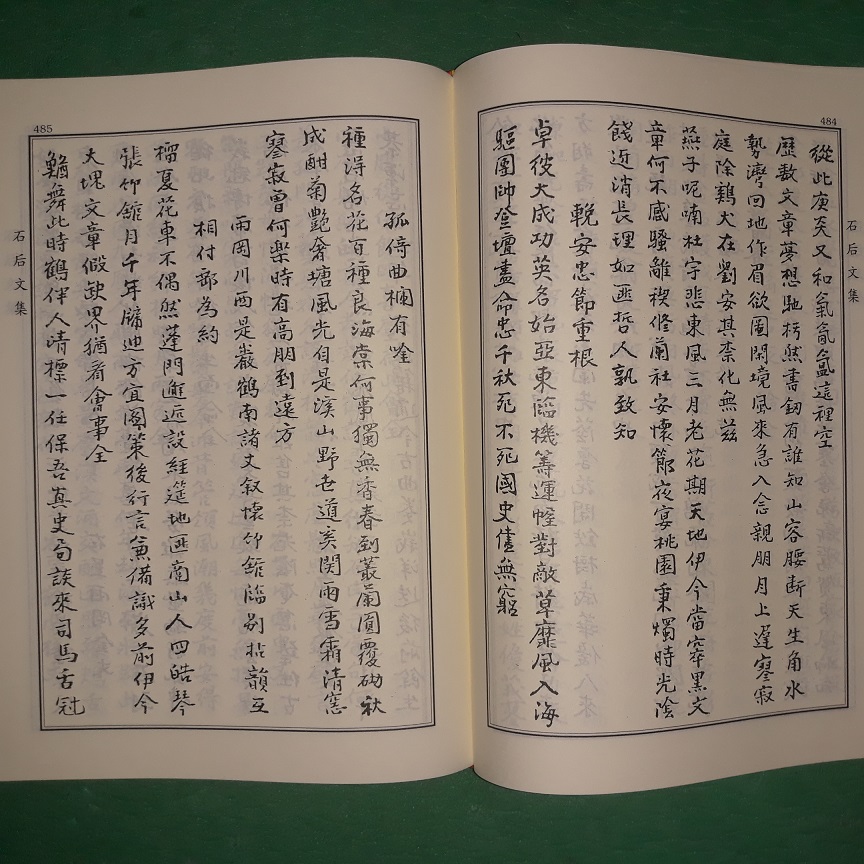 484
石后文集
從此庚炎又和氣氤氳這裡空
歷數文章夢想馳朽然書劒有誰知山容腰断天生角水
勢灣回地作眉欲圖閑境風來急入念親朋月上遲寥寂
庭除鷄犬在劉安其柰化無茲
燕子呢喃杜宇悲東風三月老花期天地伊今當宰黑文
章何不感騷離禊修蘭社安懷節夜宴桃園秉燭時光陰
餞近消長理如匪哲人孰致知
輓安忠節重根
卓彼大成功英名始亞東臨機籌運幄對敵草靡風入海
驅圍帥登壇盡命忠千秋死不死國史儘無窮
孤倚曲欄有唫
種得名花百種良海棠何事獨無香春到叢蘭圓覆砌秋
成酣菊艶奢塘風光自是溪山野世道奚関雨雪霜清窓
寥寂曾何楽時有高朋到遠方
雨岡川西是巖鶴南諸丈叙懷竹館臨別拈韻互
相付部為約
榴夏花東不偶然蓬門邂逅設經筵地匪商山人四皓琴
張竹館月千年牖迪方宜圖策後行言兼備識多前伊今
大塊文章假缺界猶看會事全
鷄舞此時鶴伴人清標一任保吾真史局談來司馬舌冠
485
石后文集